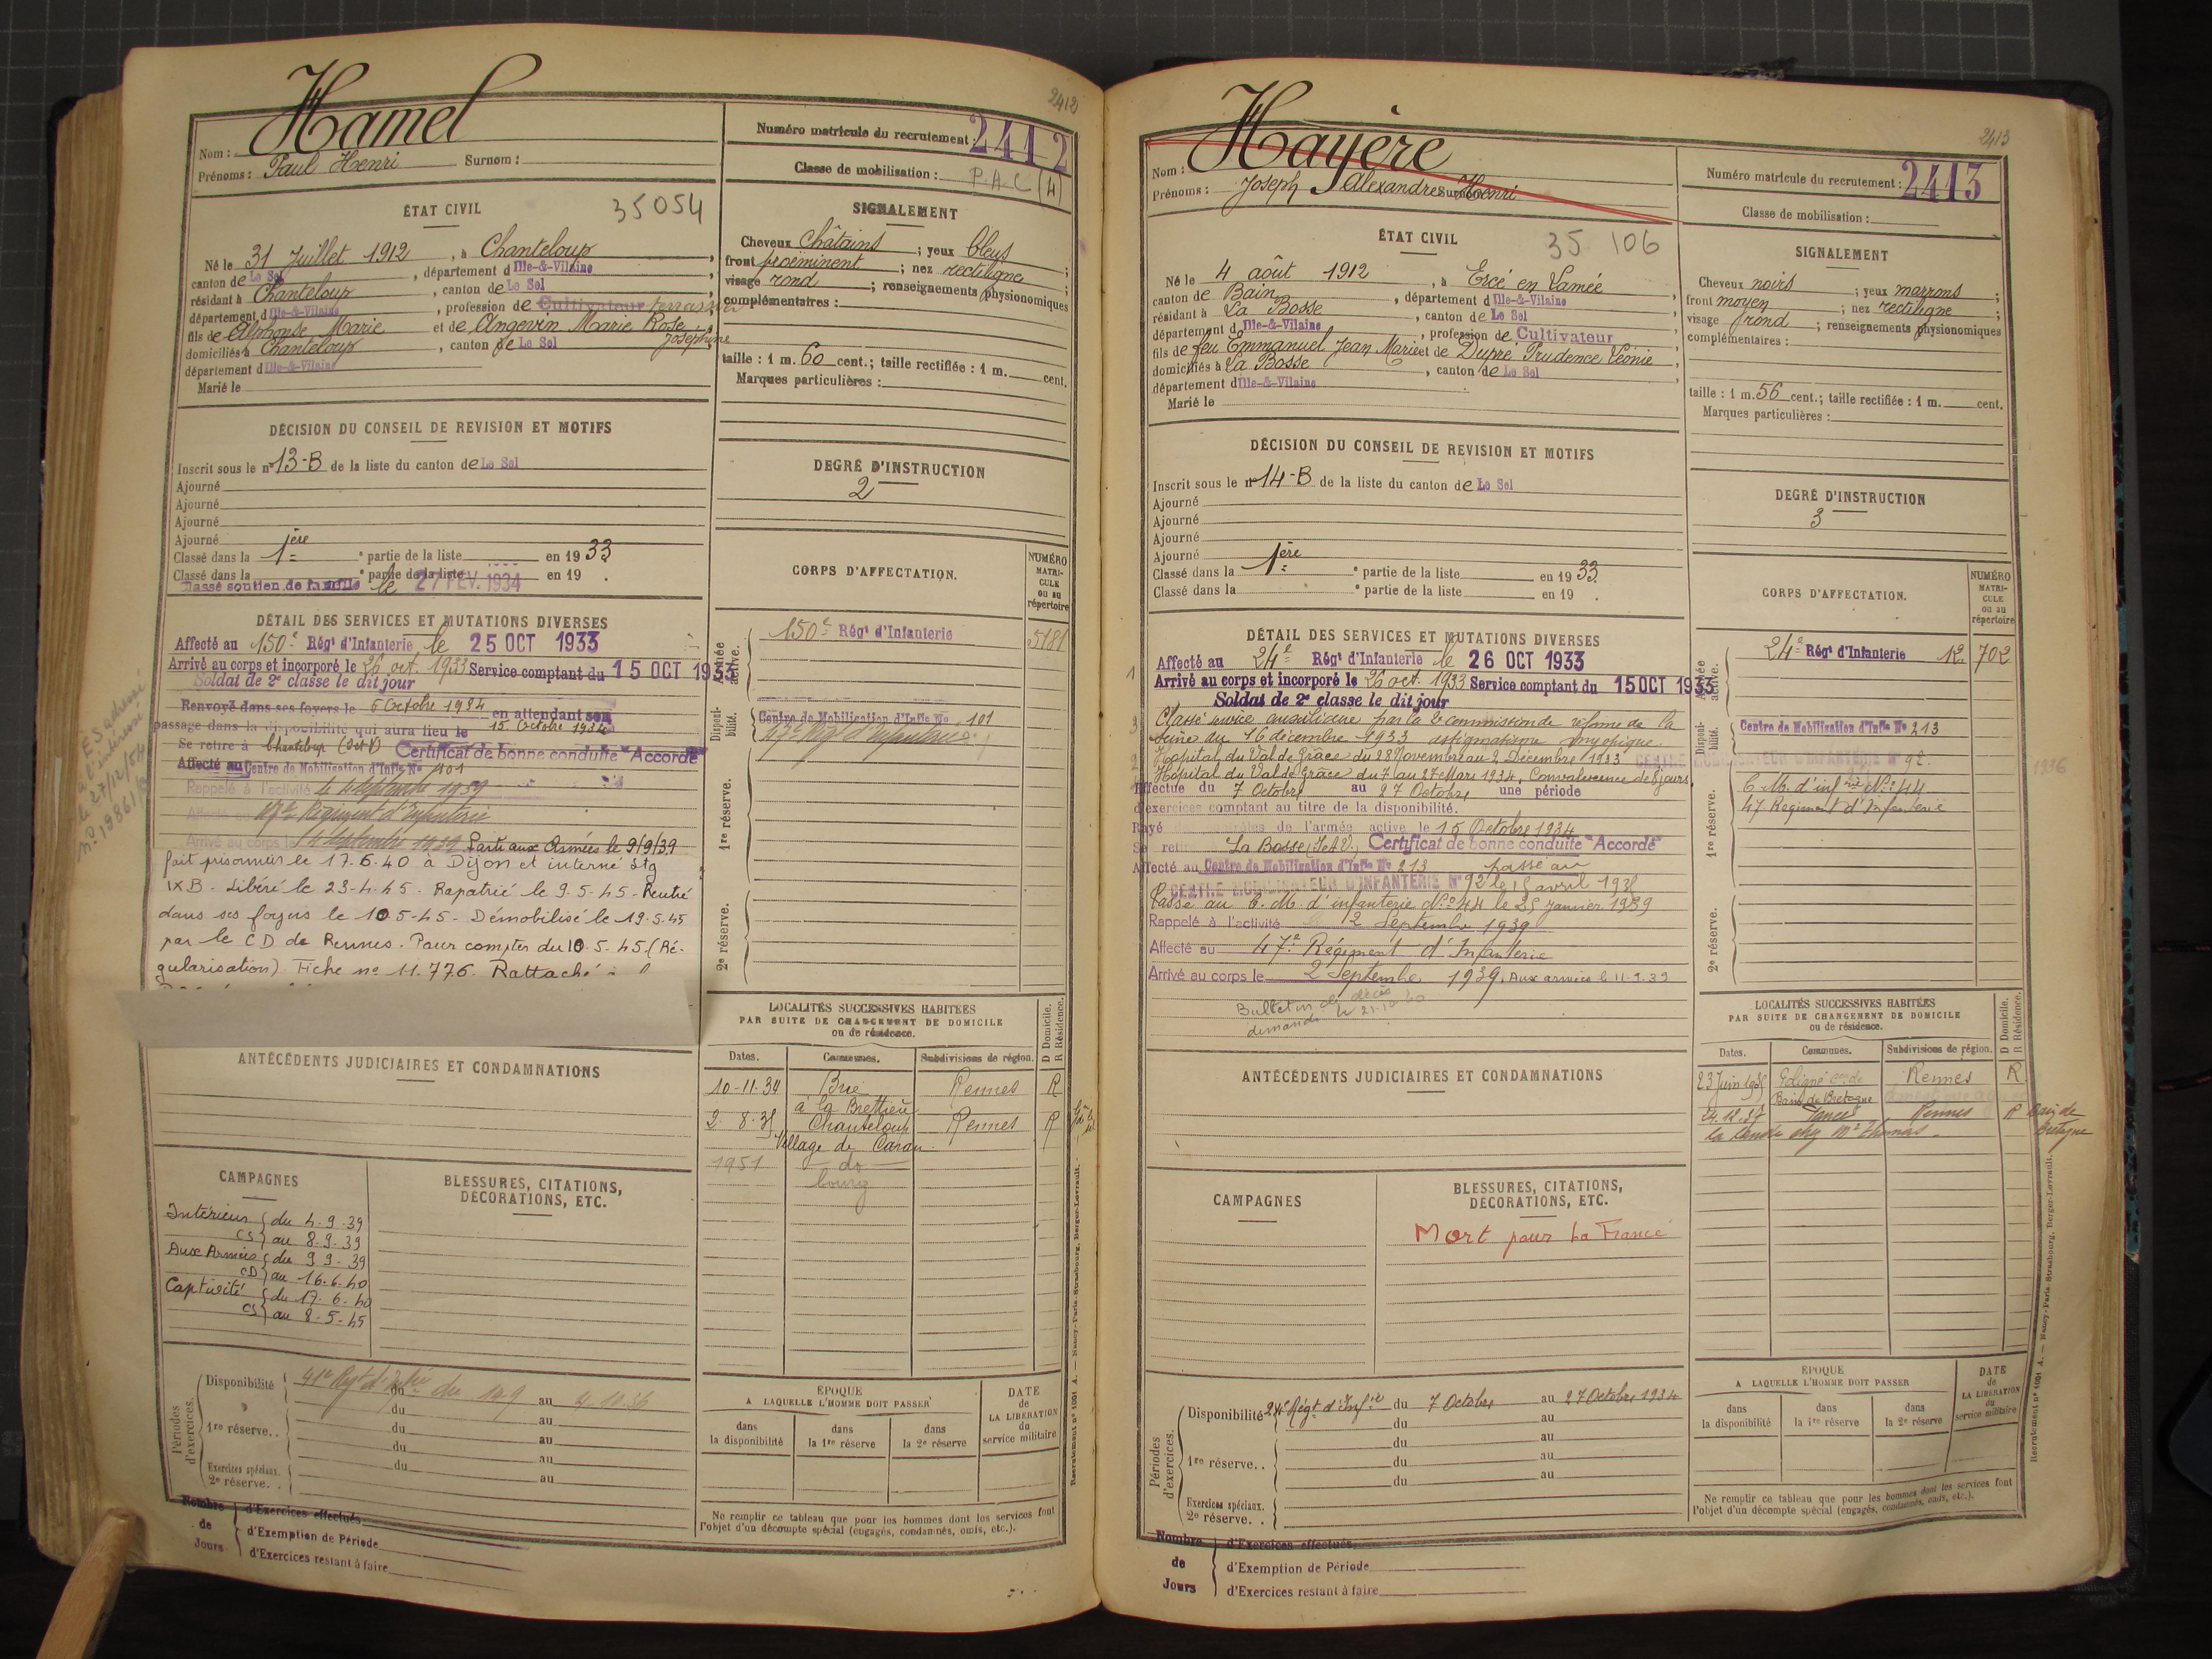 2412
Hamel
Nom :
Prénoms : Paul Henri Surnom :
Numéro matricule du recrutement : 2412
Classe de mobilisation : P.A.C (4)
ÉTAT CIVIL 35054
Né le 31 Juillet 1912, à Chanteloup
canton de Le Sel, département d Ille-&-Vilaine,
résidant à Chanteloup, canton de Le Sel
département d Ille-&-Vilaine, profession de Cultivateur
fils de Alphonse Marie et de Angevin Marie Rose Joséphine
domiciliés à Chanteloup, canton de Le Sel
département d Ille-&-Vilaine
Marié le
SIGNALEMENT
Cheveux Châtains ; yeux bleus ;
front proéminent ; nez rectiligne ;
visage rond ; renseignements physionomiques
complémentaires :
taille : 1 m. 60 cent.; taille rectifiée : 1 m. cent.
Marques particulières :
DÉCISION DU CONSEIL DE REVISION ET MOTIFS
Inscrit sous le n° 13-B de la liste du canton de Le Sel
Ajourné
Ajourné
Ajourné
Ajourné
Classé dans la 1ère partie de la liste en 1933
Classé dans la e partie de la liste en 19 .
Classé soutien de famille le 27 FEV. 1934
DEGRÉ D'INSTRUCTION
2
CORPS D'AFFECTATION.
NUMÉRO MATRICULE ou au répertoire
Armée active.
150e Régt d'Infanterie 5181
Disponibilité.
Centre de Mobilisation d'Infie No 101
1re réserve.
2e réserve.
DÉTAIL DES SERVICES ET MUTATIONS DIVERSES
Affecté au 150e Régt d'Infanterie le 25 OCT 1933
Arrivé au corps et incorporé le 26 oct. 1933 Service comptant du 15 OCT 1933
Soldat de 2e classe le dit jour
Renvoyé dans ses foyers le 6 Octobre 1934 en attendant son
passage dans la disponibilité qui aura lieu le 15 Octobre 1934
Se retire à Chanteloup (I&V) Certificat de bonne conduite "Accordé"
Affecté au Centre de Mobilisation d'Infie No 101
Rappelé à l'activité le 4 septembre 1939
Régiment d'Infanterie
Arrivé au corps le 4 Septembre 1939 Parti aux Armées le 9/9/39
fait prisonnier le 17.6.40 à Dijon et interné Stg
IX B - Libéré le 23-4-45 - Rapatrié le 9-5-45 - Rentré
dans ses foyers le 10 5-45 - Démobilisé le 19-5-45
par le CD de Rennes. Pour compter du 10-5-45 (Ré-
gularisation) Fiche no 11.776. Rattaché à
le 27/12/54
LOCALITÉS SUCCESSIVES HABITÉES
PAR SUITE DE CHANGEMENT DE DOMICILE
ou de résidence.
D Domicile. R Résidence.
Dates. Communes. Subdivisions de région.
10-11-34 Brie Rennes R
à la Brettière
2-8-35 Chanteloup Rennes R
Village de Caran
1951 do
bourg
ANTÉCÉDENTS JUDICIAIRES ET CONDAMNATIONS
CAMPAGNES
Intérieur { du 4-9-39
CS } au 8-9-39
Aux Armées { du 9 9-39
CD } au 16.6.40
Captivité { du 17-6-40
CS } au 8-5-45
BLESSURES, CITATIONS,
DÉCORATIONS, ETC.
Périodes d'exercices.
Disponibilité du 14.9 au 4.10.36
du au
1re réserve. . du au
du au
Exercices spéciaux. du au
2e réserve. . au
ÉPOQUE
A LAQUELLE L'HOMME DOIT PASSER
dans la disponibilité dans la 1re réserve dans la 2e réserve
DATE de LA LIBÉRATION du service militaire
Ne remplir ce tableau que pour les hommes dont les services font
l'objet d'un décompte spécial (engagés, condamnés, omis, etc.).
Nombre de Jours
d'Exercices effectués
d'Exemption de Période
d'Exercices restant à faire
Recrutement n° 1001 A. — Nancy-Paris-Strasbourg, Berger-Levrault.
2413
Hayère
Nom :
Prénoms : Joseph Alexandre Surnom Henri
Numéro matricule du recrutement : 2413
Classe de mobilisation :
ÉTAT CIVIL 35 106
Né le 4 août 1912, à Ercé en Lamée
canton de Bain, département d Ille-&-Vilaine
résidant à La Bosse, canton de Le Sel
département d Ille-&-Vilaine, profession de Cultivateur
fils de feu Emmanuel Jean Marie et de Dupré Prudence Léonie
domiciliés à La Bosse, canton de Le Sel
département d Ille-&-Vilaine
Marié le
SIGNALEMENT
Cheveux noirs ; yeux marrons ;
front moyen ; nez rectiligne ;
visage rond ; renseignements physionomiques
complémentaires :
taille : 1 m. 56 cent.; taille rectifiée : 1 m. cent.
Marques particulières :
DÉCISION DU CONSEIL DE REVISION ET MOTIFS
Inscrit sous le n° 14-B de la liste du canton de Le Sel
Ajourné
Ajourné
Ajourné
Ajourné
Classé dans la 1ère partie de la liste en 1933.
Classé dans la e partie de la liste en 19 .
DEGRÉ D'INSTRUCTION
3
CORPS D'AFFECTATION.
NUMÉRO MATRICULE ou au répertoire
Armée active.
24e Régt d'Infanterie 12. 702
Disponibilité.
Centre de Mobilisation d'Infie No 213
CENTRE MOBILISATEUR D'INFANTERIE N° 92.
1re réserve.
C. M. d'infrie No 44
47 Régiment d'Infanterie
1936
2e réserve.
DÉTAIL DES SERVICES ET MUTATIONS DIVERSES
Affecté au 24e Régt d'Infanterie le 26 OCT 1933
Arrivé au corps et incorporé le 26 oct. 1933 Service comptant du 15 OCT 1933
Soldat de 2e classe le dit jour
Classé service auxiliaire par la commission de réforme de la
Seine du 16 décembre 1933 astigmatisme myopique.
Hopital du Val de Grâce du 28 Novembre au 2 Décembre 1933
Hopital du Val de Grâce du 7 au 27 Mars 1934. Convalescence de 8 jours
Effectue du 7 Octobre au 27 Octobre une période
d'exercices comptant au titre de la disponibilité.
Rayé des contrôles de l'armée active le 15 Octobre 1934
Se retire La Bosse (I&V.) Certificat de bonne conduite "Accordé"
Affecté au Centre de Mobilisation d'Infie No 213 passé au
CENTRE MOBILISATEUR D'INFANTERIE N° 92 le 15 avril 1935
Passé au C. M. d'infanterie No 44 le 25 Janvier 1939
Rappelé à l'activité 2 Septembre 1939
Affecté au 47e Régiment d'Infanterie
Arrivé au corps le 2 Septembre 1939. Aux armées le 11-9-39
Bulletin de décès
demandé le 21-10-40
LOCALITÉS SUCCESSIVES HABITÉES
PAR SUITE DE CHANGEMENT DE DOMICILE
ou de résidence.
D Domicile. R Résidence.
Dates. Communes. Subdivisions de région.
23 Juin 1935 Poligné con de Rennes R
Bain de Bretagne
Rennes R Bain de
Bretagne
ANTÉCÉDENTS JUDICIAIRES ET CONDAMNATIONS
CAMPAGNES
BLESSURES, CITATIONS,
DÉCORATIONS, ETC.
Mort pour La France
Périodes d'exercices.
Disponibilité 24e Régt d'Infie du 7 Octobre au 27 Octobre 1934
du au
du au
1re réserve. . du au
du au
Exercices spéciaux.
2e réserve. .
ÉPOQUE
A LAQUELLE L'HOMME DOIT PASSER
dans la disponibilité dans la 1re réserve dans la 2e réserve
DATE de LA LIBÉRATION du service militaire
Ne remplir ce tableau que pour les hommes dont les services font
l'objet d'un décompte spécial (engagés, condamnés, omis, etc.).
Nombre de Jours
d'Exercices effectués
d'Exemption de Période
d'Exercices restant à faire
Recrutement n° 1001 A. — Nancy-Paris-Strasbourg, Berger-Levrault.